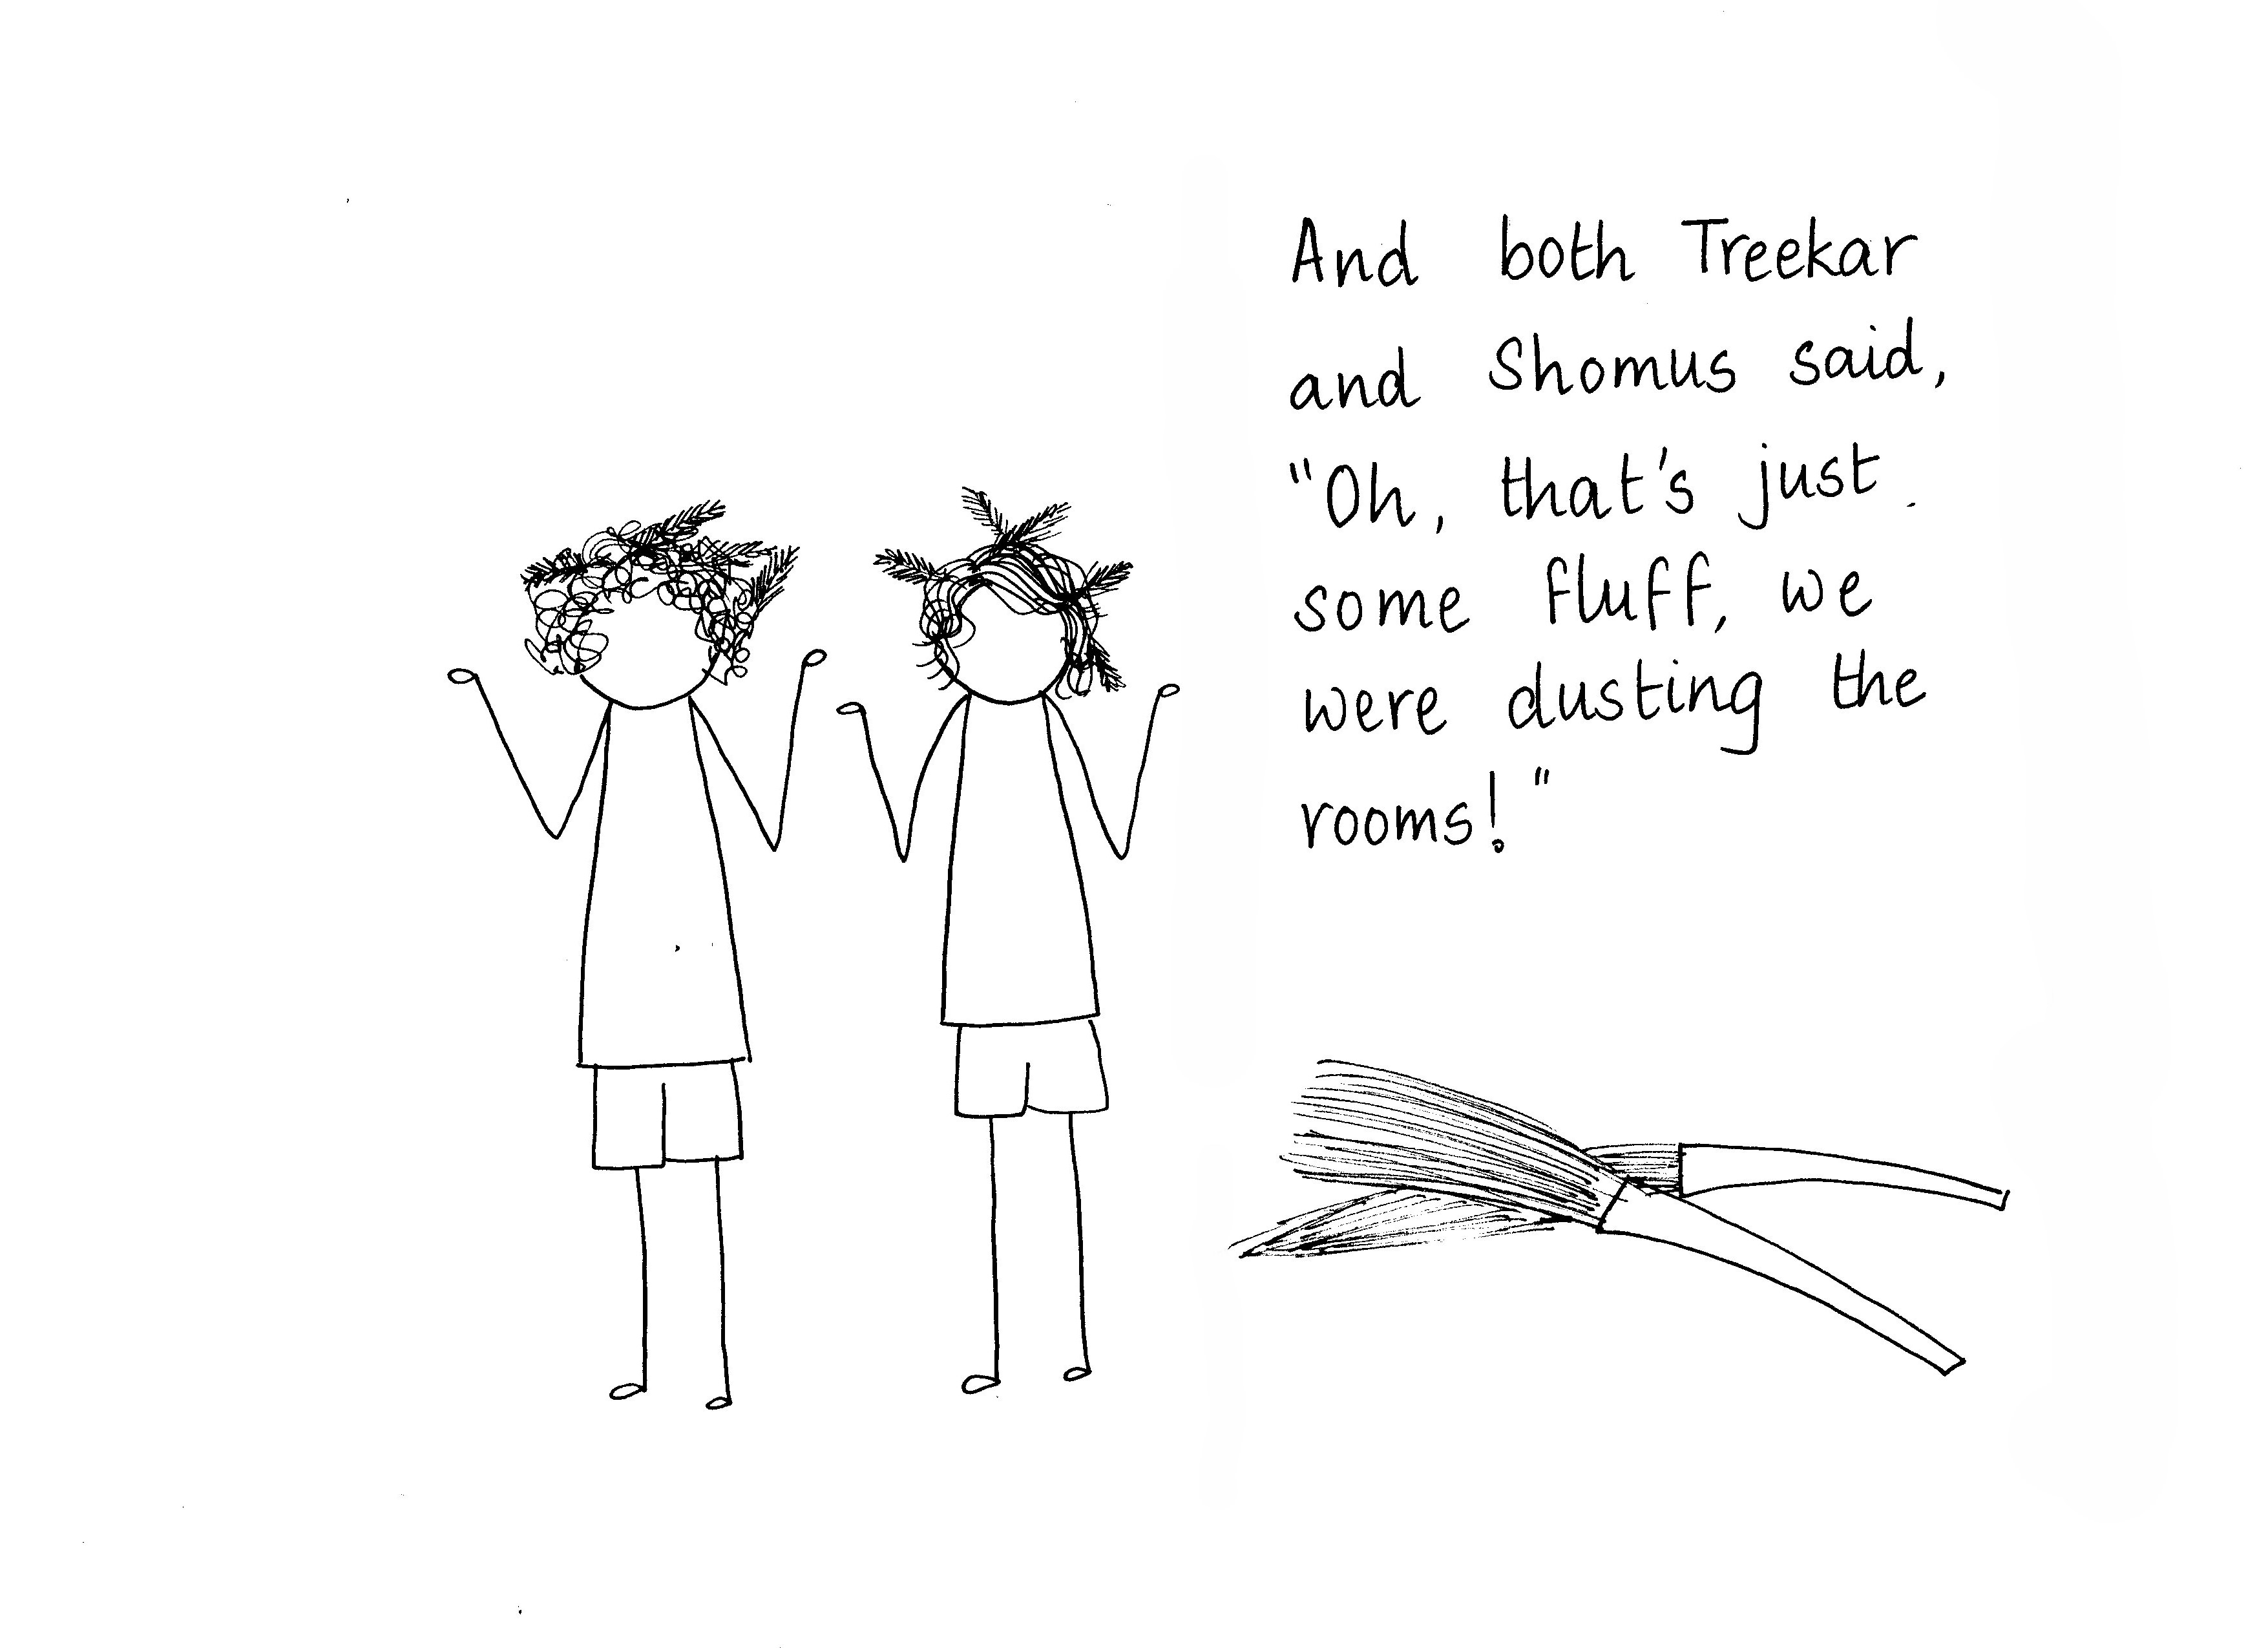 And both Treekar
and Shomus said,
"Oh, that's just
some fluff, we
were dusting the
rooms!"